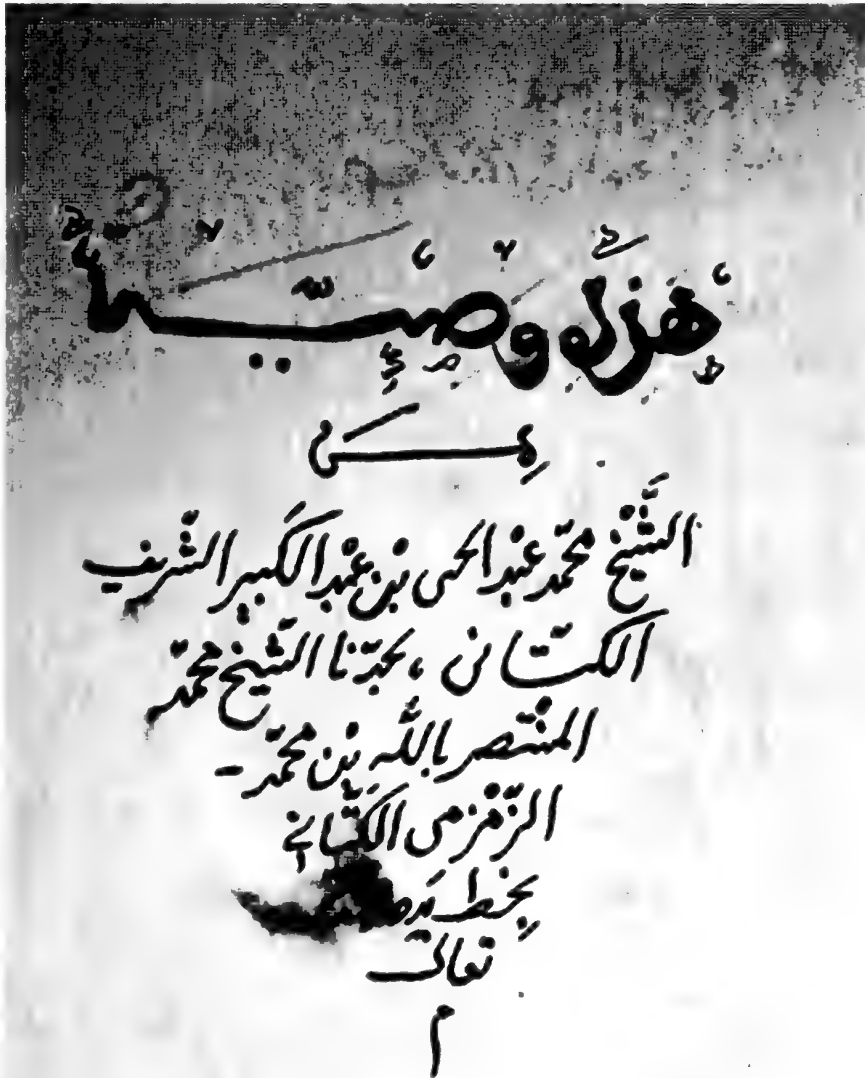 هذه وصيّة
مِن
الشَّيْخ محمّد عبْد الحى بْن عبْد الكَبير الشّريف
الكتّانى ، لجدّنا الشّيخ محمّد
المنْتصر باللّه بْن محمّد -
الزّمْزمى الكتَّاني
بِخط
تعالى
م